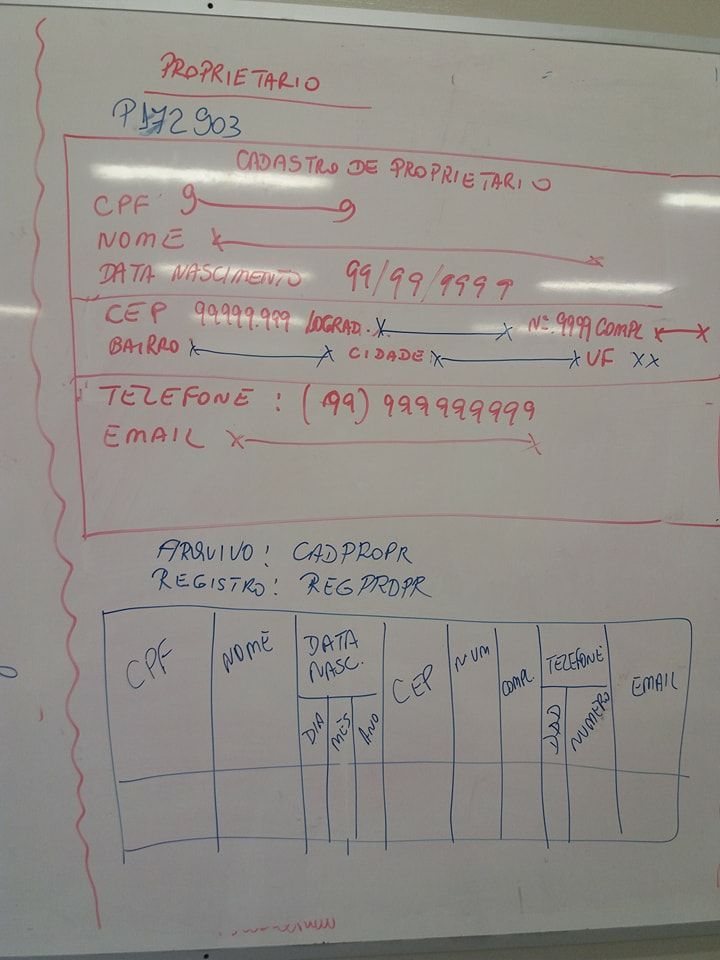 PROPRIETARIO
P172903
CADASTRO DE PROPRIETARIO
CPF 9 9
NOME X X
DATA NASCIMENTO 99/99/9999
CEP 99999.999 LOGRAD. X X Nº. 9999 COMPL X X
BAIRRO X X CIDADE X X UF XX
TELEFONE : (99) 999999999
EMAIL X X
ARQUIVO: CADPROPR
REGISTRO: REGPROPR
CPF NOME DATA NASC. CEP NUM COMPL. TELEFONE EMAIL
DIA MÊS ANO DDD NUMERO